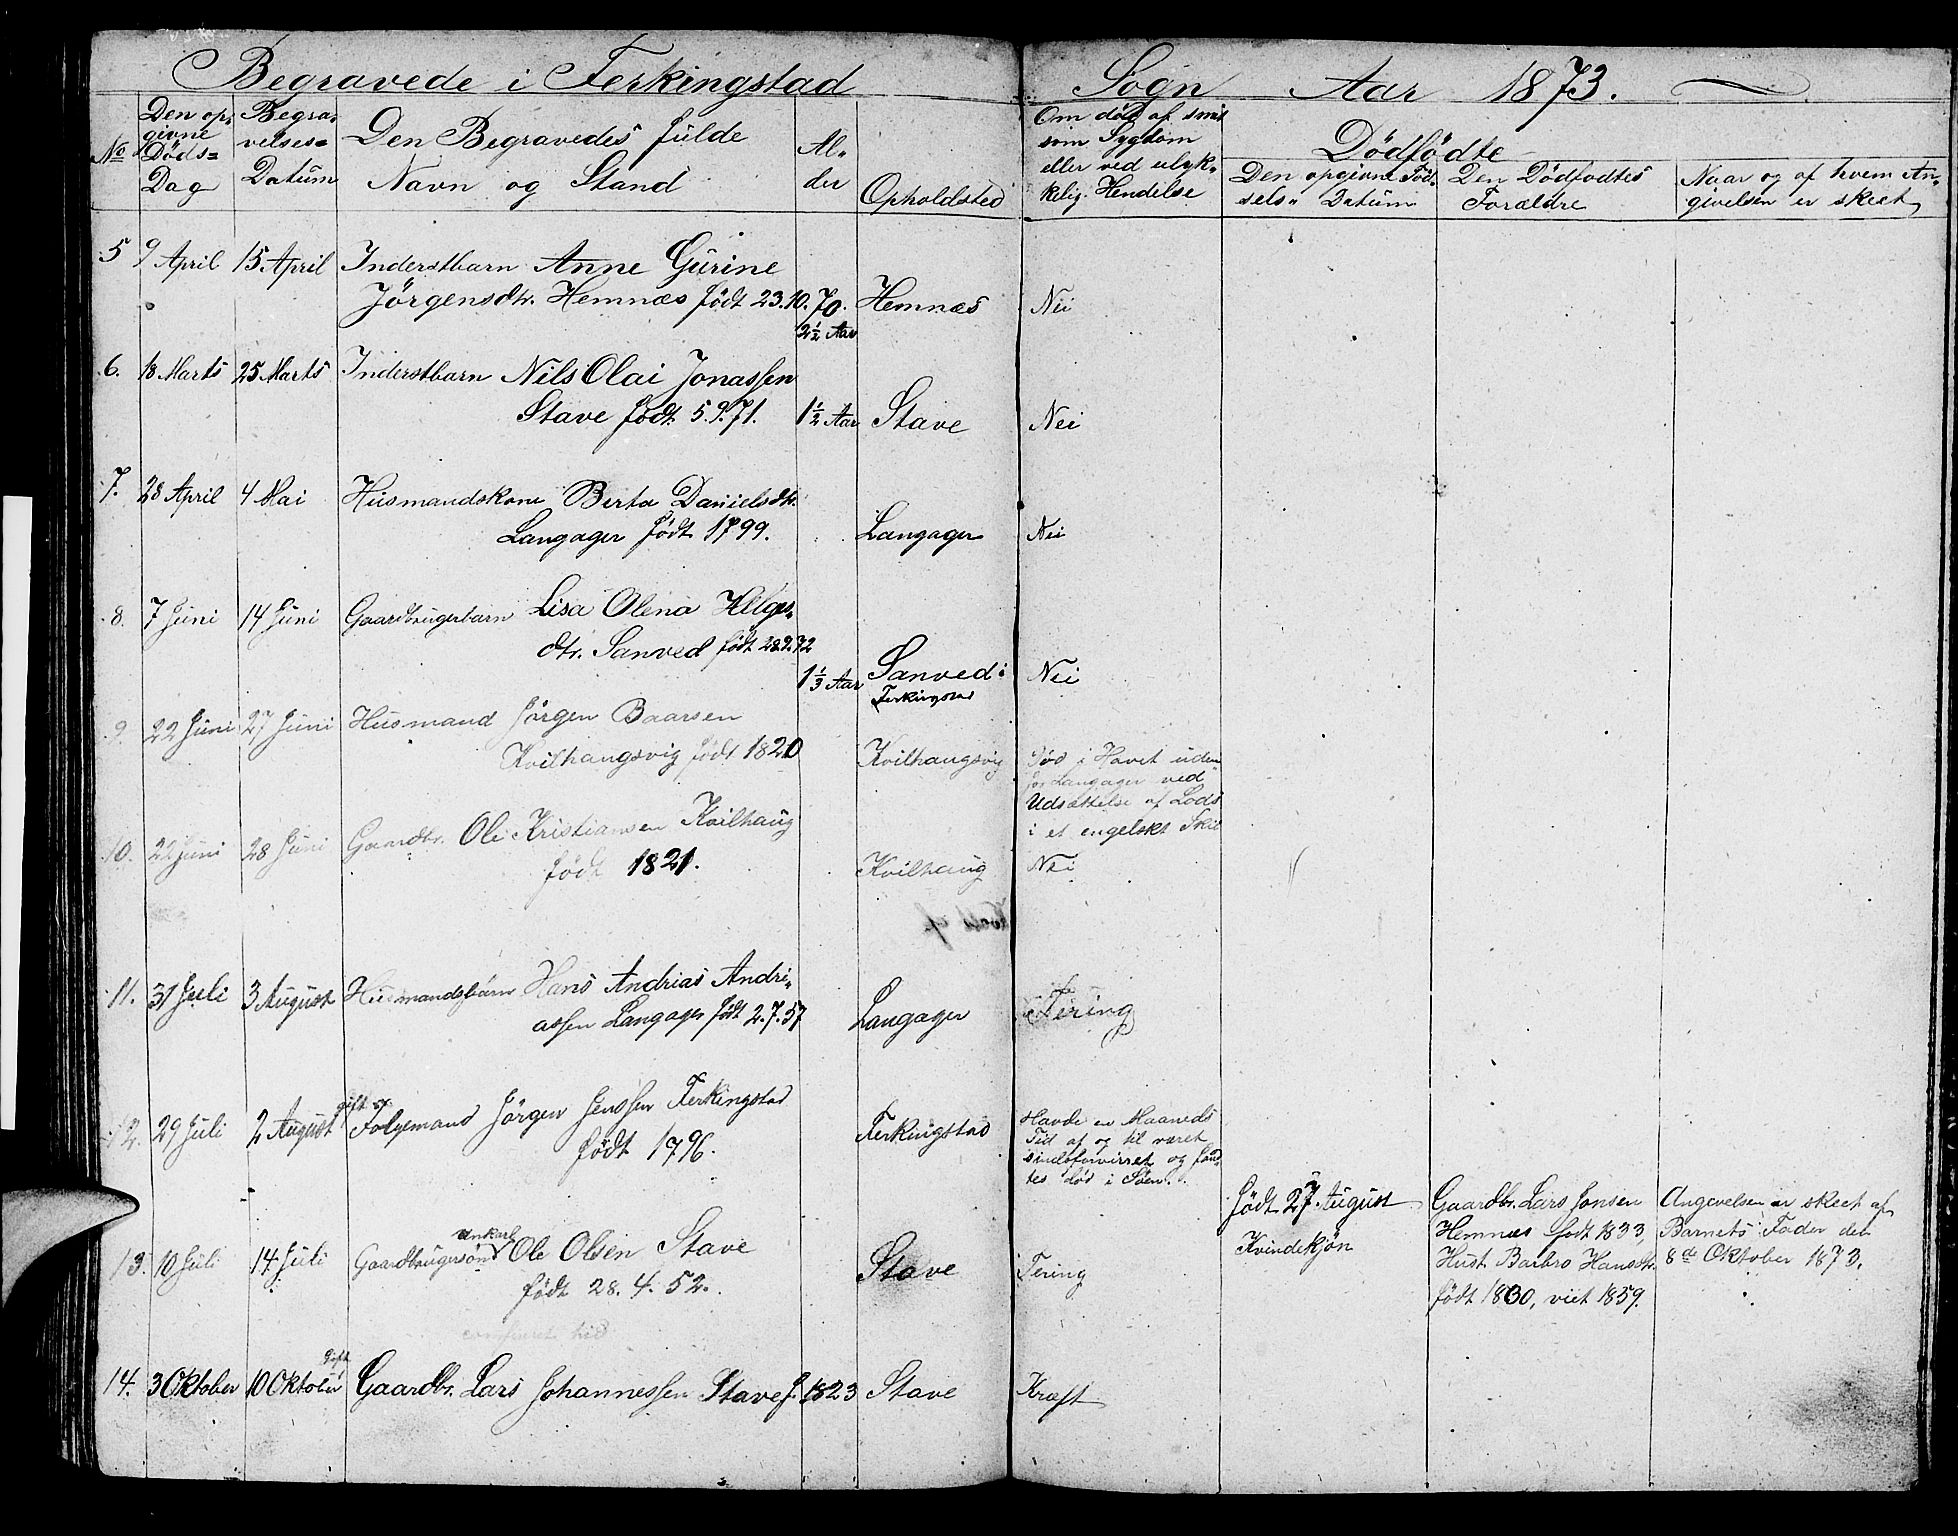 Begravede i Ferkingstad Sogn Aar 1873.
No
Den op-
givne
Døds=
Dag
Begra-
velses=
Datum
Den Begravedes fulde
Navn og Stand
Al-
der
Opholdsted
Om død af smit
som Sygdom
eller ved ulyk-
kelig Hendelse
Dødfødte
Den opgivne Fød-
sels- Datum
Den Dødfødtes
Forældre
Naar og af hvem An-
givelsen er skeet
5 9 April 15 April Inderstbarn Anne Gurine
Jörgensdtr. Hemnæs født 23.10.70. Hemnæs Nei
2½ Aar
6. 18 Marts 25 Marts Inderstbarn Nils Olai Jonassen
Stave født 5.9.71. 1½ Aar Stave Nei
7. 28 April 4 Mai Husmandskone Berta Danielsdtr.
Langager født 1799. Langager Nei
8. 7 Juni 14 Juni Gaardbrugerbarn Lisa Olena Helges-
dtr. Sanved født 28.9.72
1⅓ Aar Sanved i Nei
Ferkingstad
9. 22 Juni 27 Juni Husmand Jörgen Baarsen
Kvilhaugsvig født 1820 Kvilhaugsvig Død i Havet uden
for Langager ved
Udsættelse af Lods
i et engelskt Skib
10. 22 Juni 28 Juni Gaardbr. Ole Kristiansen Kvilhaug
født 1821. Kvilhaug Nei
11. 31 Juli 3 August Husmandsbarn Hans Andrias Andri-
assen Langager født 2.7.57 Langager Tæring
12. 29 Juli 2 August gift
Folgemand Jörgen Jenssen Ferkingstad
født 1796. Ferkingstad
Havde en Maaneds
Tid af og til været
sindsforvirret og fand-
tes død i Søen.
født 27 August
Kvindekjön
Gaardbr. Lars Jonsen
Hemnæs født 1833,
Hust. Barbro Hansdtr.
født 1830, viet 1859.
Angivelsen er skeet af
Barnets Fader den
8de Oktober 1873.
13. 10 Juli 14 Juli Gaardbrugersøn Unkarl Ole Olsen Stave
født 28.4.52. Stave Tering
14. 3 Oktober 10 Oktober gift Gaardbr. Lars Johannessen Stave f. 1823 Stave Kræft